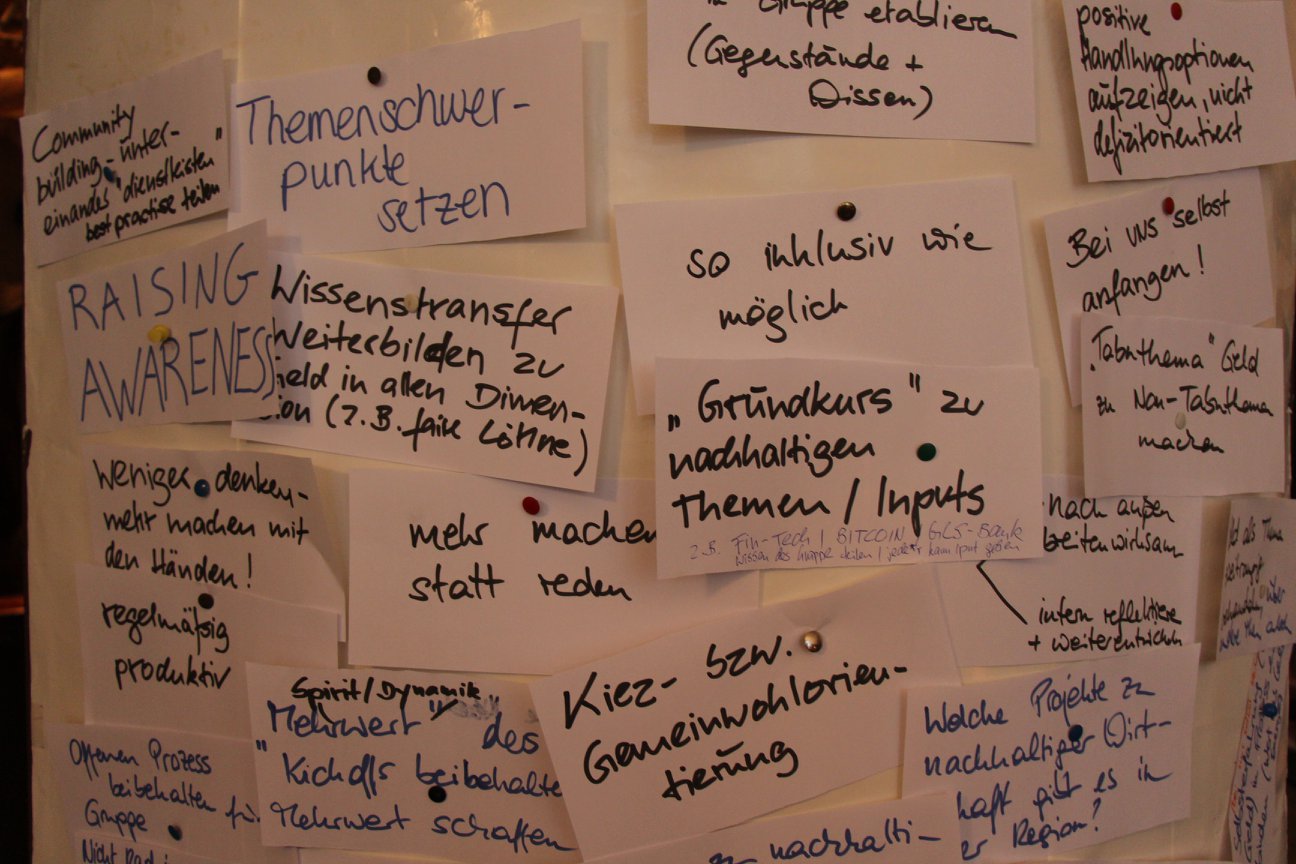 Community
building - unter-
einander "dienstleisten"
best practise teilen
Themenschwer-
punkte
setzen
Gruppe etablieren
(Gegenstände +
Wissen)
positive
Handlungsoptionen
aufzeigen, nicht
defizitorientiert
RAISING
AWARENESS
Wissenstransfer
Weiterbilden zu
Geld in allen Dimen-
sion (z.B. faire Löhne)
so inklusiv wie
möglich
Bei uns selbst
anfangen!
"Tabuthema" Geld
zu Non-Tabuthema
machen
"Grundkurs" zu
nachhaltigen
Themen / Inputs
z.B. Fin-Tech / BITCOIN / GLS-Bank
Wissen der Gruppe teilen / jede*r kann Input geben
Weniger denken -
mehr machen mit
den Händen!
mehr machen
statt reden
nach außen
breitenwirksam
intern reflektiere
+ weiterentwickeln
regelmäßig
produktiv
Spirit/Dynamik
"Mehrwert" des
Kickoffs beibehalte
Mehrwert schaffen
Kiez- bzw.
Gemeinwohlorien-
tierung
Welche Projekte zu
nachhaltiger Wirt-
schaft gibt es in
Region?
Offenen Prozess
beibehalten für
Gruppe
Nicht
nachhalti-
als Thema